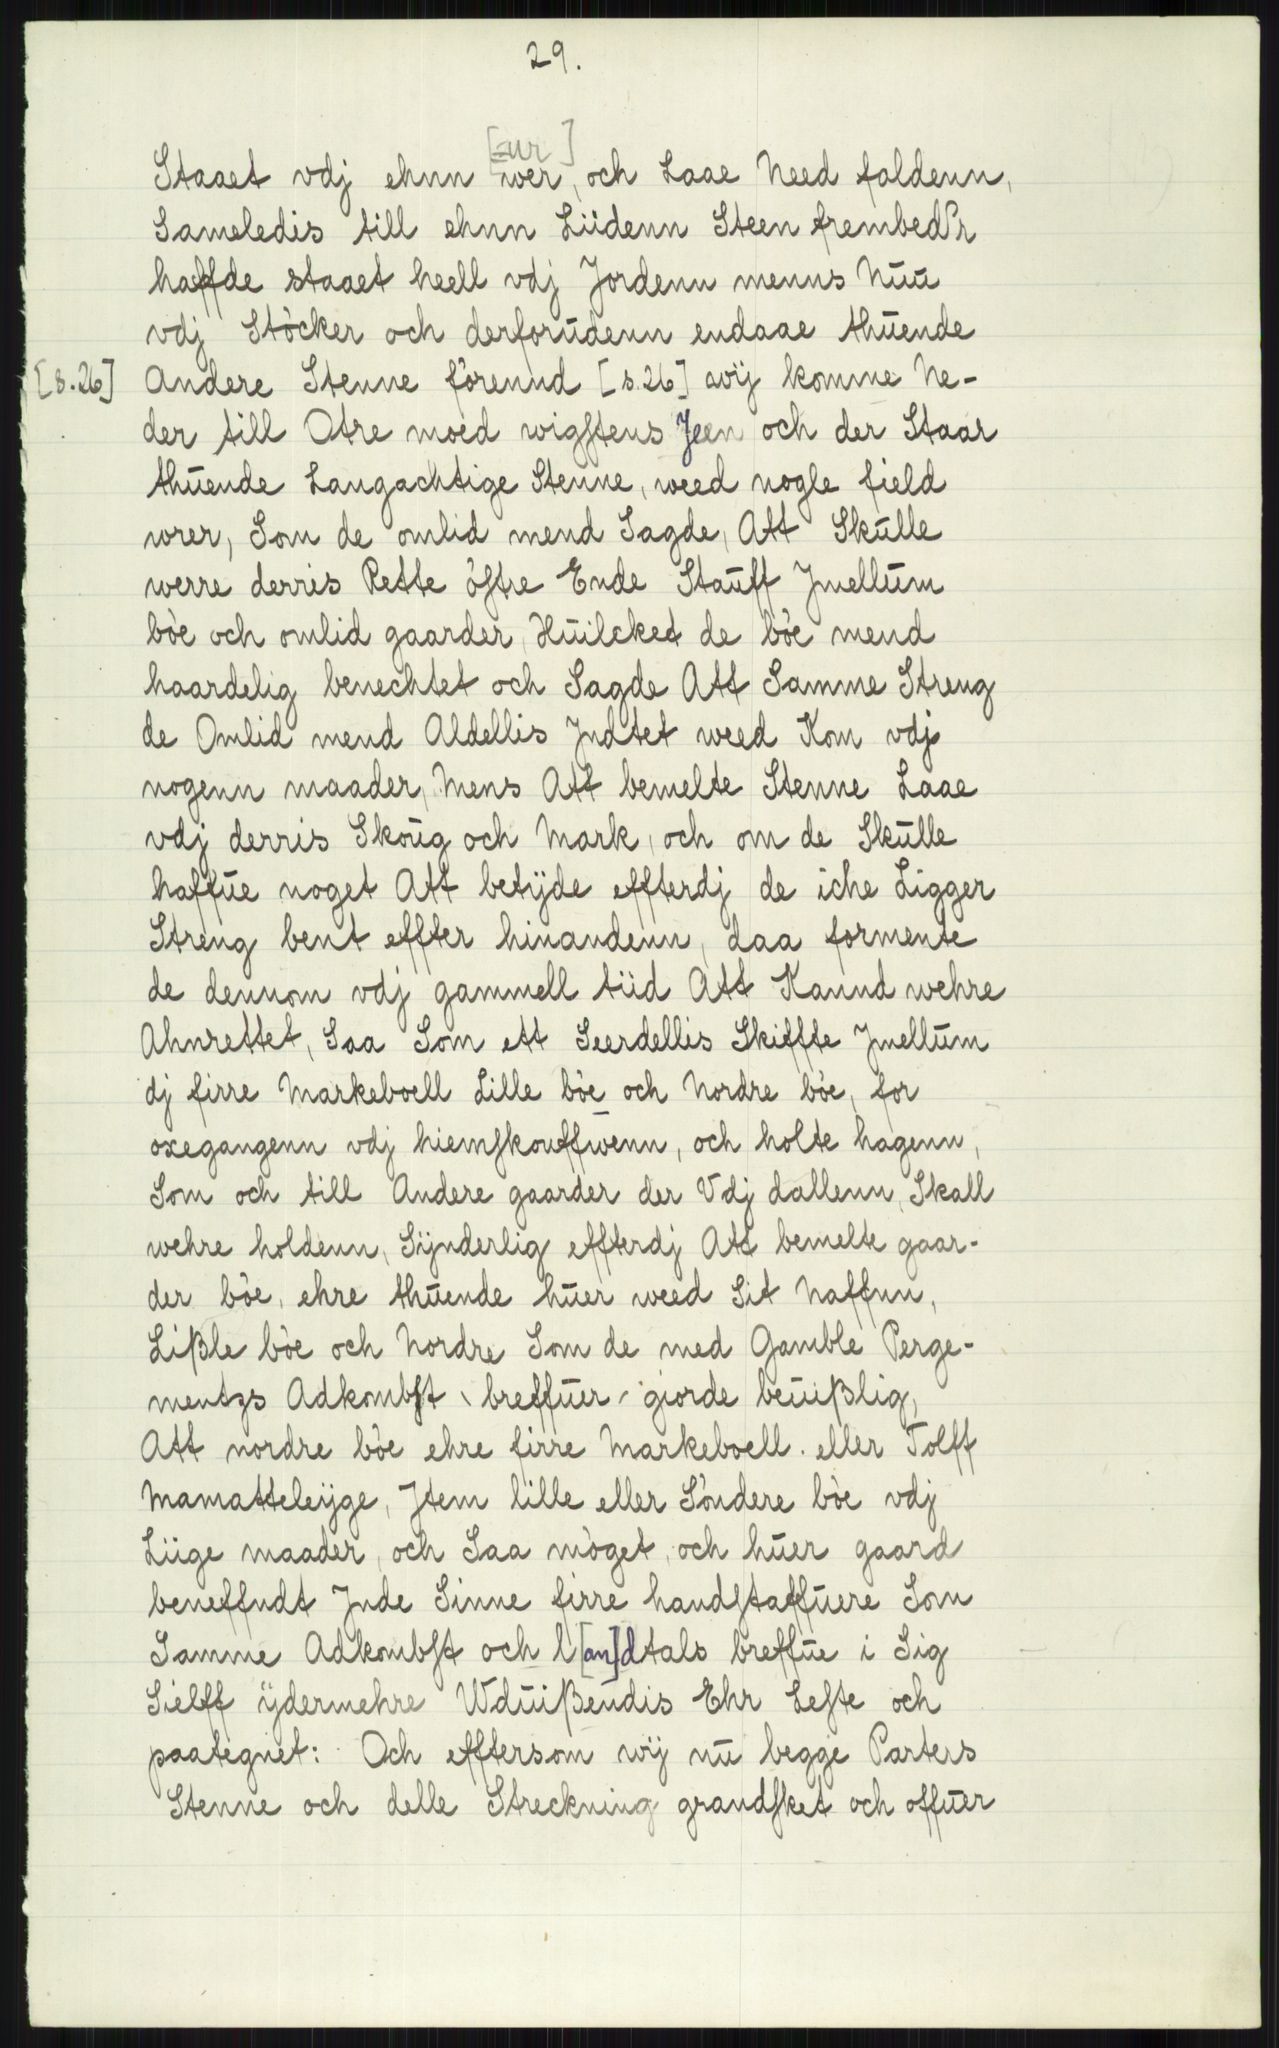 29.
[=ur]
Staaet vdj ehnn wer, och Laae Need faldenn,
Sameledis till ehnn Liidenn Steen frembed
haffde staaet heell vdj Jordenn menns Nuu
vdj Stòcker och derforudenn endaae thuende
[s.26] Andere Stenne fòrennd [s.26] wij komme Ne-
der till Otre moed wigstens Jeen och der Staar
thuende Langachtige Stenne, weed nogle field
wrer, Som de omlid mend Sagde, Att Skulle
werre derris Rette òstre Ende Stauff Jmellum
bòe och omlid gaarder, Huilcket de bòe mend
haardelig benechtet och Sagde Att Samme Streng
de Omlid mend Aldellis Jndtet weed Kom vdj
nogenn maader, Mens Att bemelte Stenne Laae
vdj derris Skoug och Mark, och om de Skulle
haffue noget Att betÿde effterdj de iche Ligger
Streng bent effter hinandenn, daa formente
de dennom vdj gammell tiid Att Kannd wehre
Ahnrettet, Saa Som ett Seerdellis Skiffte Jmellum
dj firre Markeboell Lille bòe och Nordre bòe, for
oxegangenn vdj hiemskouffwenn, och holte hagenn,
Som och till Andere gaarder der Vdj dallenn, Skall
wehre holdenn, Sÿnderlig effterdj Att bemelte gaar-
der bòe, ehre thuende huer weed Sit Naffnn,
Lißle bòe och Nordre Som de med Gamble Perge-
mentzs Adkombst breffuer giorde beuißlig,
Att nordre bòe ehre firre Markeboell eller Tolff
Mamatteleÿge, Jtem lille eller Sòndere bòe vdj
Liige maader, och Saa mòget, och huer gaard
beneffndt Jnde Sinne firre handstaffuere Som
Samme Adkombst och l[an]dtals breffue i Sig
Sielff ÿdermehre Wduißendis Ehr Leste och
paategnet: Och efftersom wÿ nu begge Parters
Stenne och delle Streckning grandsket och offuer